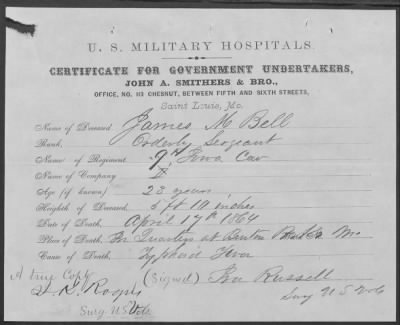 U. S. MILITARY HOSPITALS.
CERTIFICATE FOR GOVERNMENT UNDERTAKERS,
JOHN A. SMITHERS & BRO.,
OFFICE, NO. 113 CHESNUT, BETWEEN FIFTH AND SIXTH STREETS,
Saint Louis, Mo.
Name of Deceased James M Bell
Rank, Orderly Sergeant
Name of Regiment 9th Iowa Cav
Name of Company
Age (if known) 22 years
Heighth of Deceased, 5 ft 10 inches
Date of Death, April 17th 1864
Place of Death, In Quarters at Benton Mo
Cause of Death, Typhoid Fever
A true Copy (Signed) Ira Russell
Surg U S Vols
Surg. U S Vols